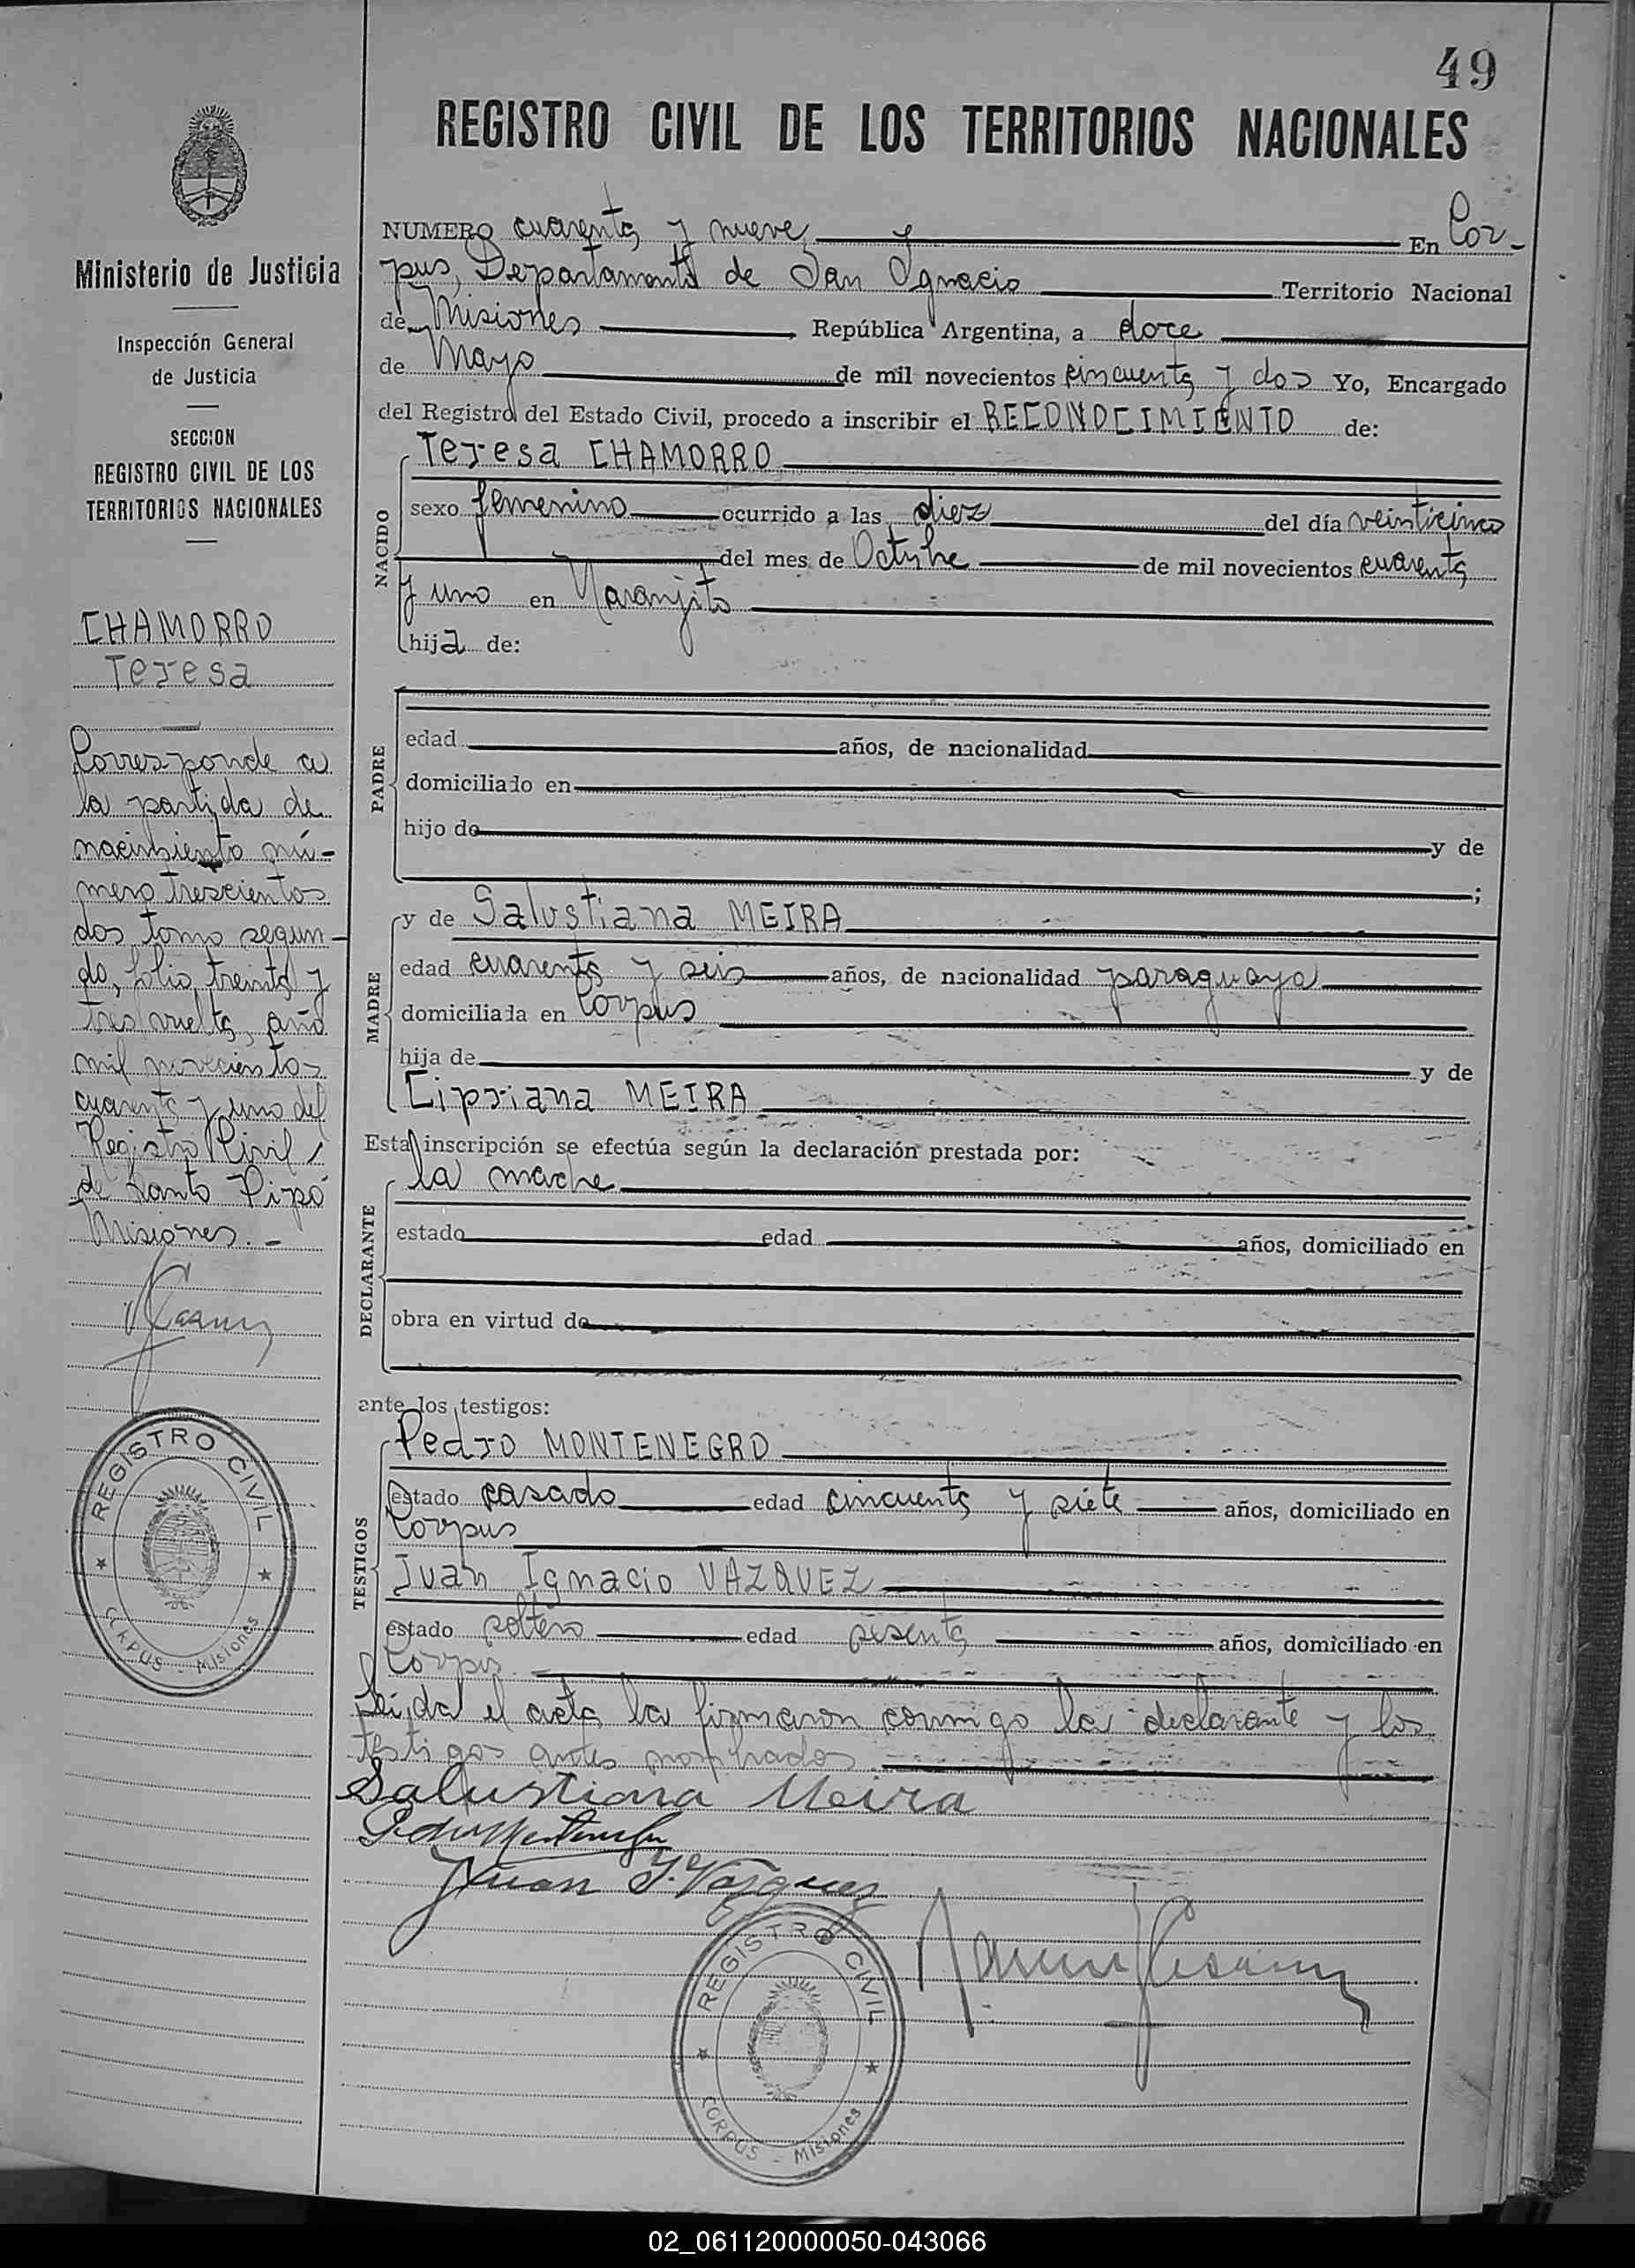 49
REGISTRO CIVIL DE LOS TERRITORIOS NACIONALES
Ministerio de Justicia
Inspección General
de Justicia
SECCION
REGISTRO CIVIL DE LOS
TERRITORIOS NACIONALES
CHAMORRO
Teresa
Corresponde a
la partida de
nacimiento nú-
mero trescientos
dos, tomo segun-
do, folio treinta y
tres vuelta, año
mil novecientos
cuarenta y uno del
Registro Civil
de Santo Pipó
Misiones.-
REGISTRO CIVIL
CORPUS - Misiones
NUMERO cuarenta y nueve En Cor-
pus, Departamento de San Ignacio Territorio Nacional
de Misiones, República Argentina, a doce
de Mayo de mil novecientos cincuenta y dos Yo, Encargado
del Registro del Estado Civil, procedo a inscribir el RECONOCIMIENTO de:
NACIDO
Teresa CHAMORRO
sexo femenino ocurrido a las diez del día veinticinco
del mes de Octubre de mil novecientos cuarenta
y uno en Naranjito
hija de:
PADRE
edad años, de nacionalidad
domiciliado en
hijo de y de
;
MADRE
y de Salustiana MEIRA
edad cuarenta y seis años, de nacionalidad paraguaya
domiciliada en Corpus
hija de y de
Cipriana MEIRA
Esta inscripción se efectúa según la declaración prestada por:
DECLARANTE
la madre
estado edad años, domiciliado en
obra en virtud de
ante los testigos:
TESTIGOS
Pedro MONTENEGRO
estado casado edad cincuenta y siete años, domiciliado en
Corpus
Juan Ignacio VAZQUEZ
estado soltero edad sesenta años, domiciliado en
Corpus.
Leida el acta la firmaron conmigo la declarante y los
testigos antes nombrados
Salustiana Meira
Pedro Montenegro
Juan I. Vazquez
REGISTRO CIVIL
CORPUS - Misiones
02_061120000050-043066